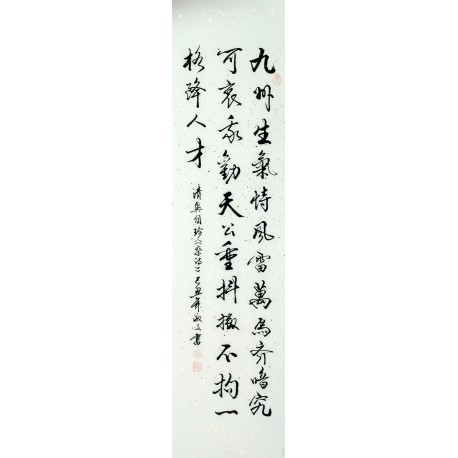 九州生氣恃風雷萬馬齐暗究
可哀我勸天公重抖擻不拘一
格降人才
清龔自珍詩己丑年書